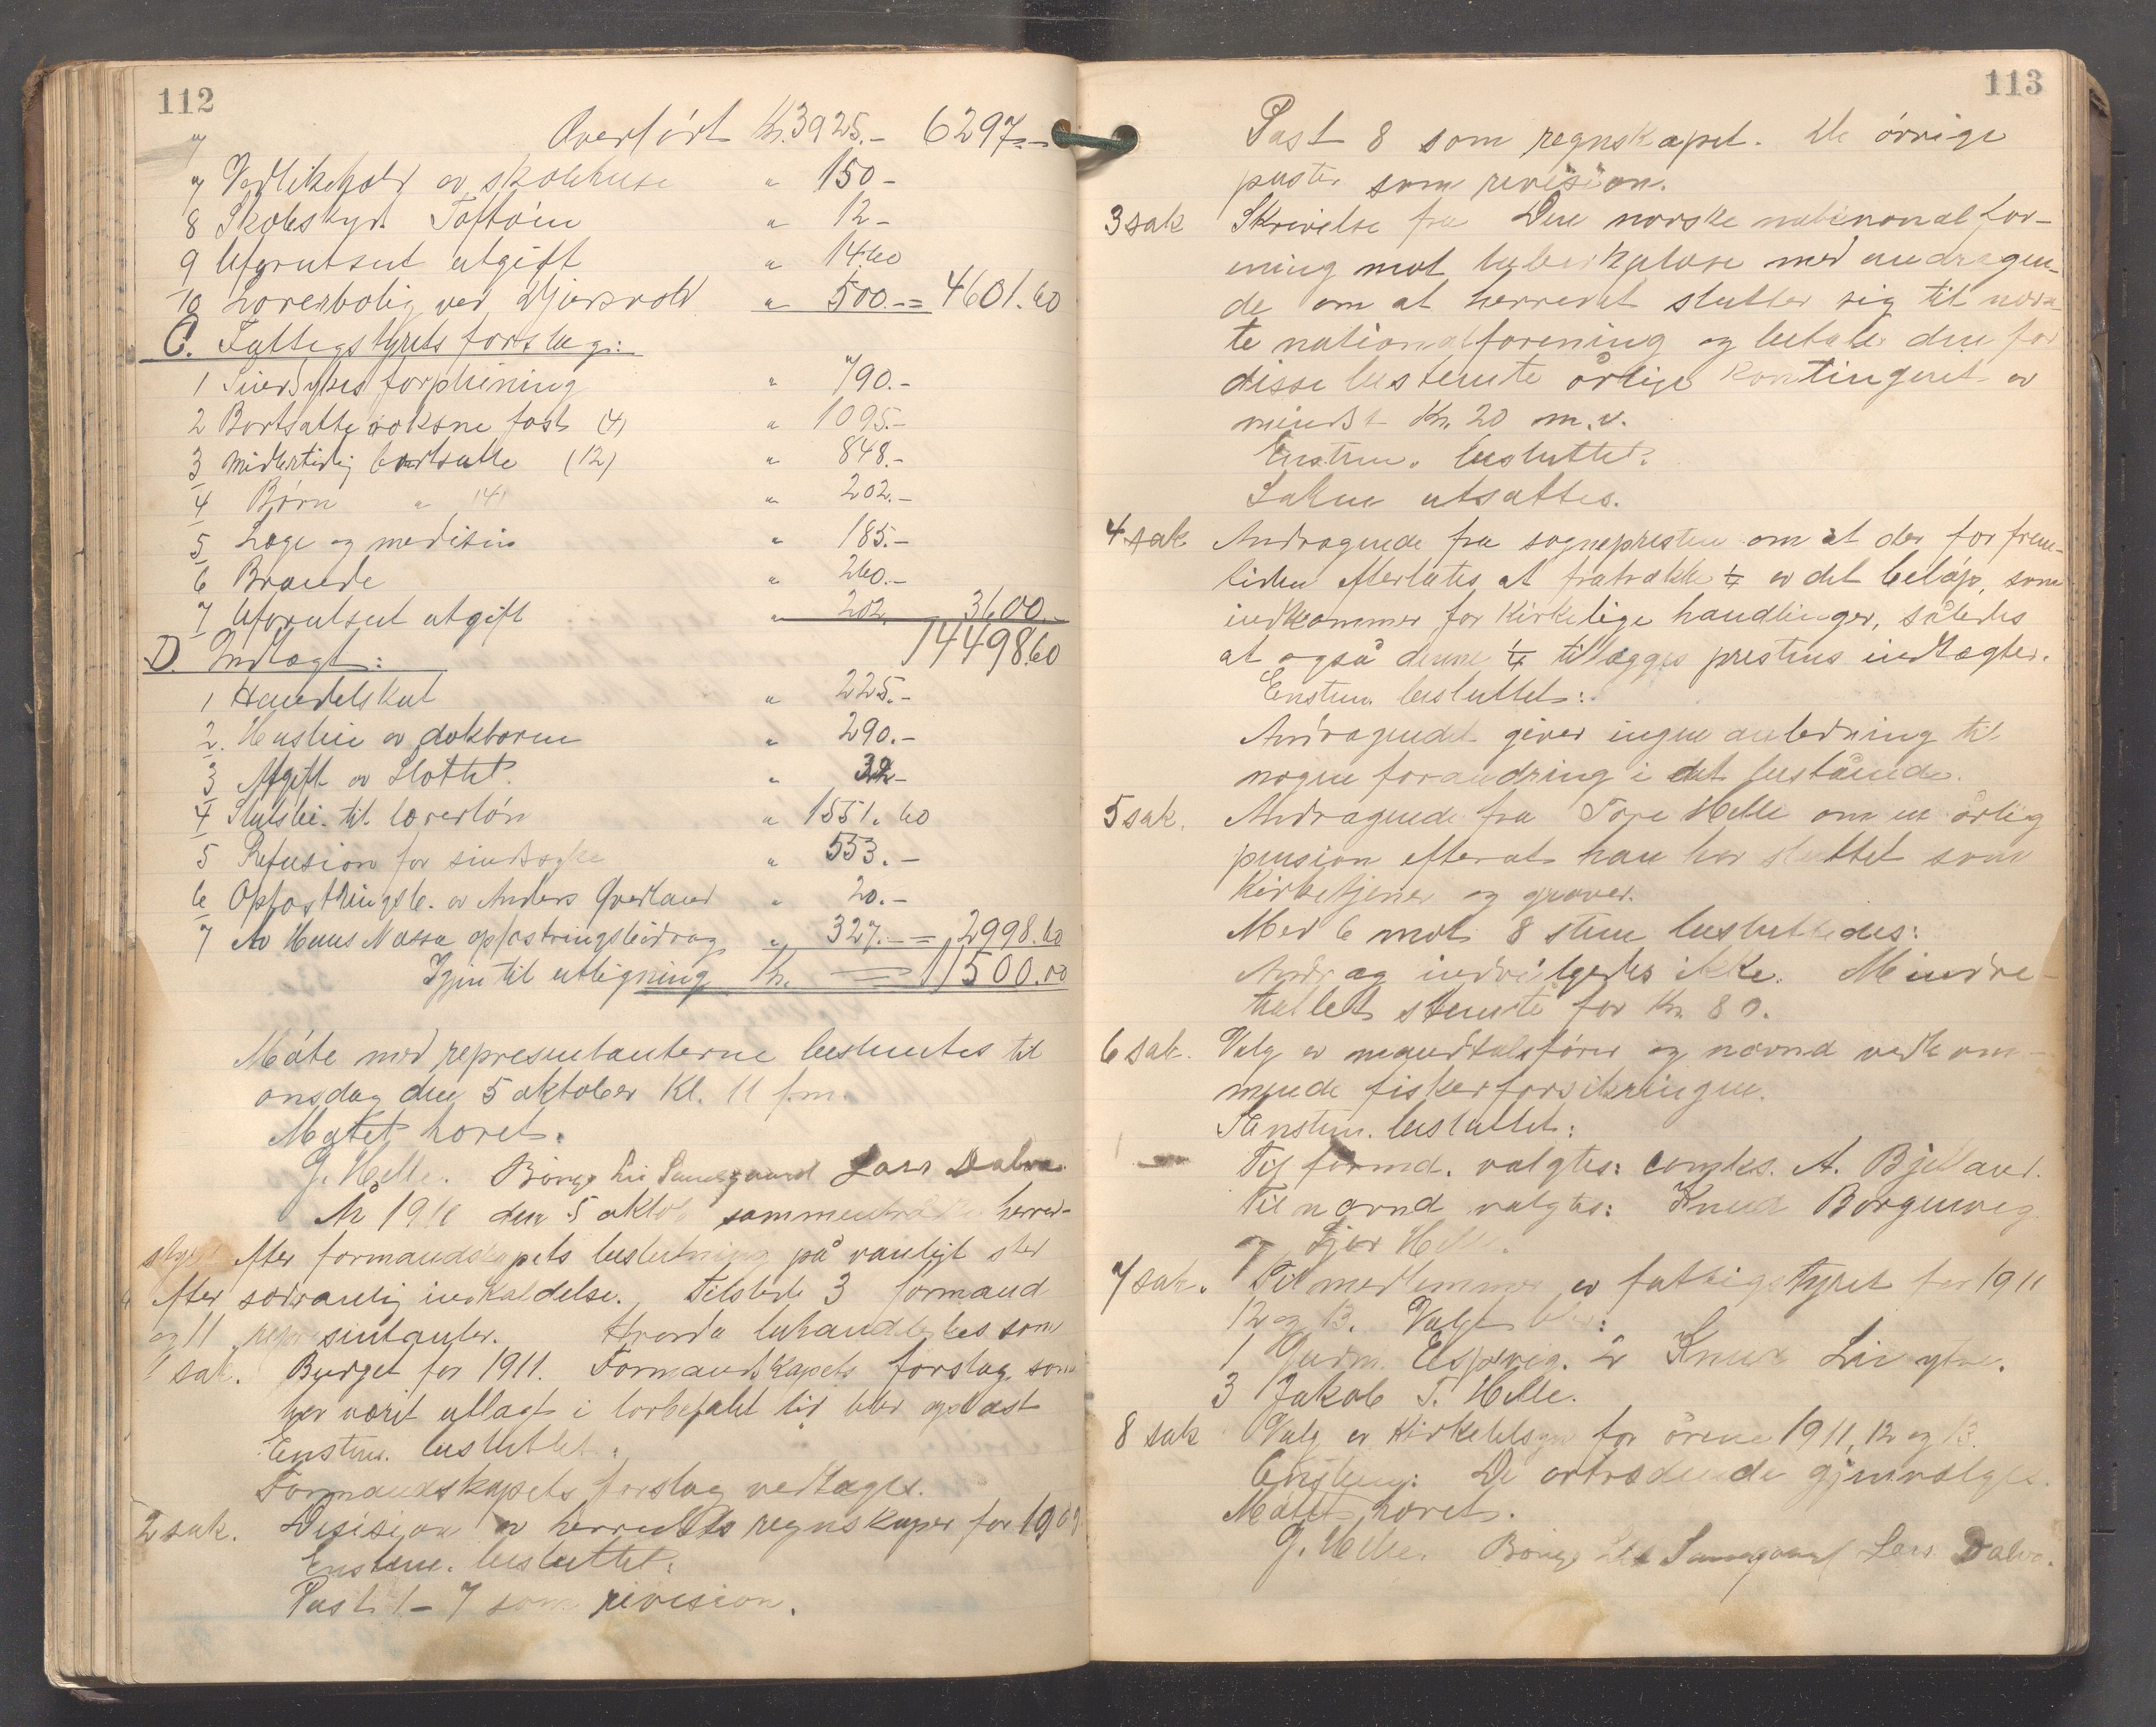 112
Overført Kr. 3925.- 6297.-
7 Vedlikehold av skolehuse " 150 -
8 Skoleskyd. Toftøin " 12 -
9 Uforutset utgift " 14.60
10 Lærerbolig ved " 500.- = 4601.60
C. Fattigstyrets forslag:
1 Sindsykes forpleining " 790.-
2 Bortsatte voksne fast (4) " 1095.-
3 Midlertidig bortsatte (12) " 848.-
4 Børn " (4) " 202.-
5 Læge og medisin " 185.-
6 Brænde " 260.-
7 Uforutset utgift " 202. 3600.-
14498.60
D. Indtægt:
1 Handelskat " 225.-
2. Husleie av doktoren " 290.-
3 Afgift av Slottet. "
4 Statsbi. til lærerløn " 1551.60
5 Refusion for sindssyke " 553.-
6 Opfostringsb. av Anders Qverland " 20.-
7 Av Hans Nessa opfostringsbidrag " 327.- = 2998.60
Igjen til utligning Kr. = 11500.00
Møte med repræsentanterne bestemtes til
onsdag den 5 oktober kl. 11 f.m.
Møtet hævet.
G. Helle. Børge Lie Sandsgaard Lars Dalva.
År 1910 den 5 oktob sammentrådte herred-
styret efter formandskapets beslutning på vanligt sted
efter sedvanlig indkaldelse. Tilstede 3 formænd
og 11 repræsentanter. Hvorda behandledes som
1 sak. Budget for 1911. Formandskapets forslag som
har været utlagt i lovbefalet tid blev oplæst
Enstem. besluttet:
Formandskapets forslag vedtages.
2 sak. Desisjon av herredets regnskaper for 1909.
Enstem. besluttet:
Post 1 - 7 som revision.
113
Post 8 som regnskapet. De øvrige
poster som revision.
3 sak Skrivelse fra Den norske nationalfor-
ening mot tuberkulose med andragen-
de om at herredet slutter sig til nævn-
te nationalforening og betaler den for
disse bestemte årlige kontingent av
mindst Kr. 20 m.v.
Enstem. besluttet:
Saken utsattes.
4 sak Andragende fra sognepresten om at der for frem-
tiden efterlates at fratrække 1/4 av det beløp, som
indkommer for kirkelige handlinger, således
at også denne 1/4 tillægges prestens indtægter.
Enstem. besluttet:
Andragendet giver ingen anledning til
nogen forandring i det bestående.
5 sak. Andragende fra Tore Helle om en årlig
pension efterat han har sluttet som
Kirketjener og graver.
Med 6 mot 8 stem besluttedes:
Andrag indvilgedes ikke. Mindre-
tallet stemte for Kr. 80.
6 sak. Valg av mandtalsfører og nævnd vedkom-
mende fiskerforsikringen.
Enstem. besluttet:
Til formd. valgtes: A. Bjelland.
Til nævnd valgtes: Knud Borgenvig
og Helle.
7 sak. Til medlemmer av fattigstyret for 1911
12 og 13. Valgt blev:
1 Gudm. Espevig. 2 Knud Lie
3 Jakob T. Helle.
8 sak Valg av Kirketilsyn for årene 1911, 12 og 13.
Enstem: De uttrædende gjenvælges.
Møtet hævet.
G. Helle. Børge Lie Sandsgaard Lars Dalva.